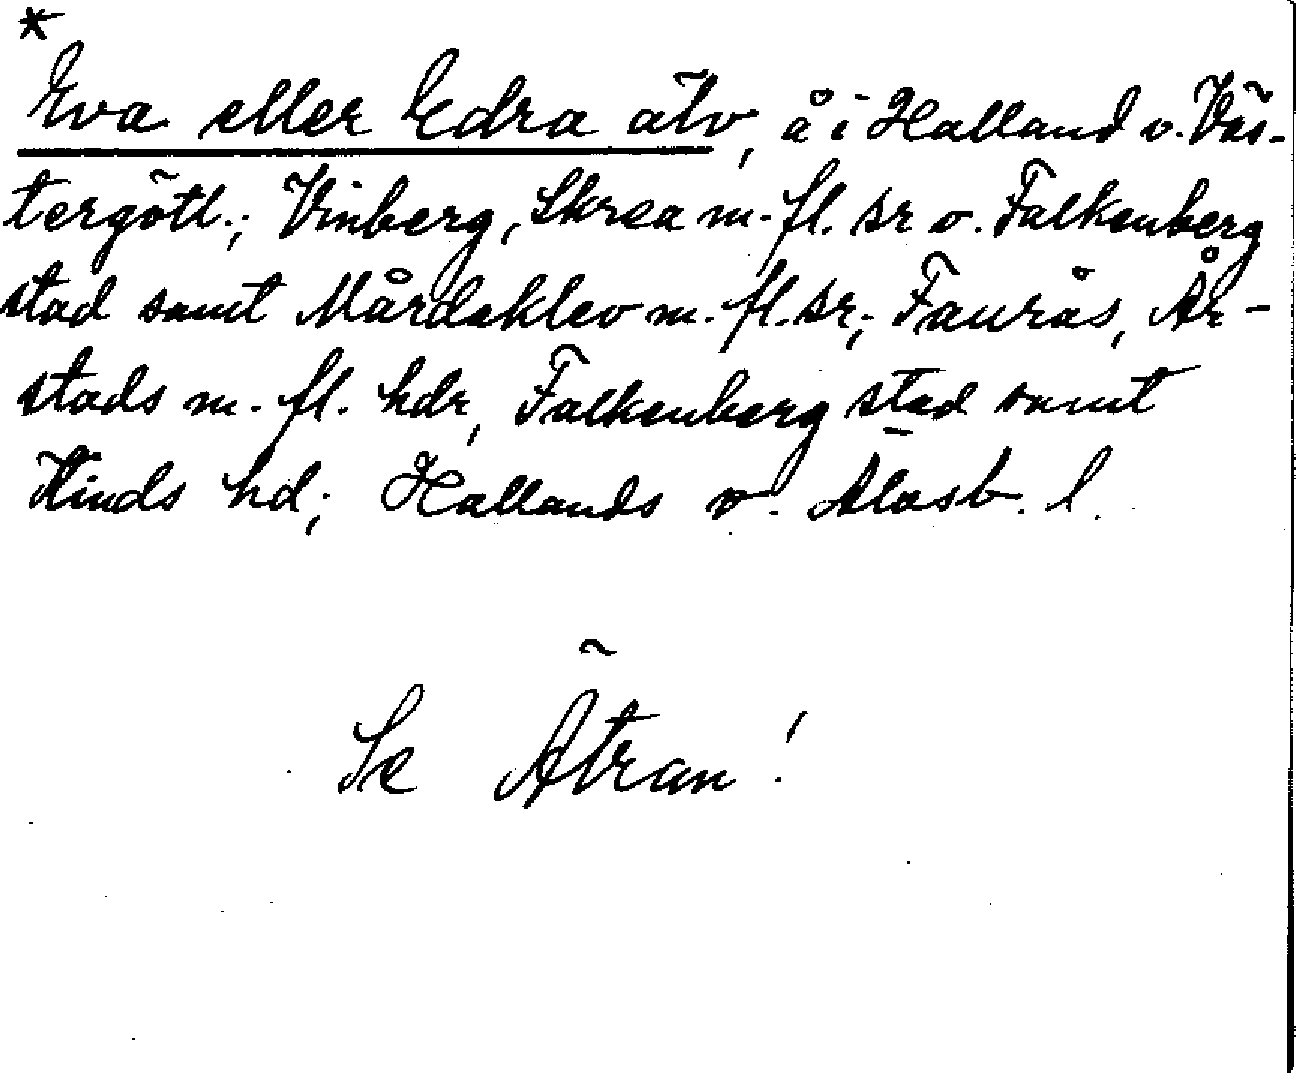 *
Eva eller Edra älv, å i Halland o. Väs-
tergötl.; Vinberg, Skrea m. fl. sr o. Falkenberg
stad samt Mårdaklev m. fl. sr; Faurås, År-
stads m. fl. hdr, Falkenberg stad samt
Kinds hd; Hallands o. Älvsb. l.
Se Ätran!